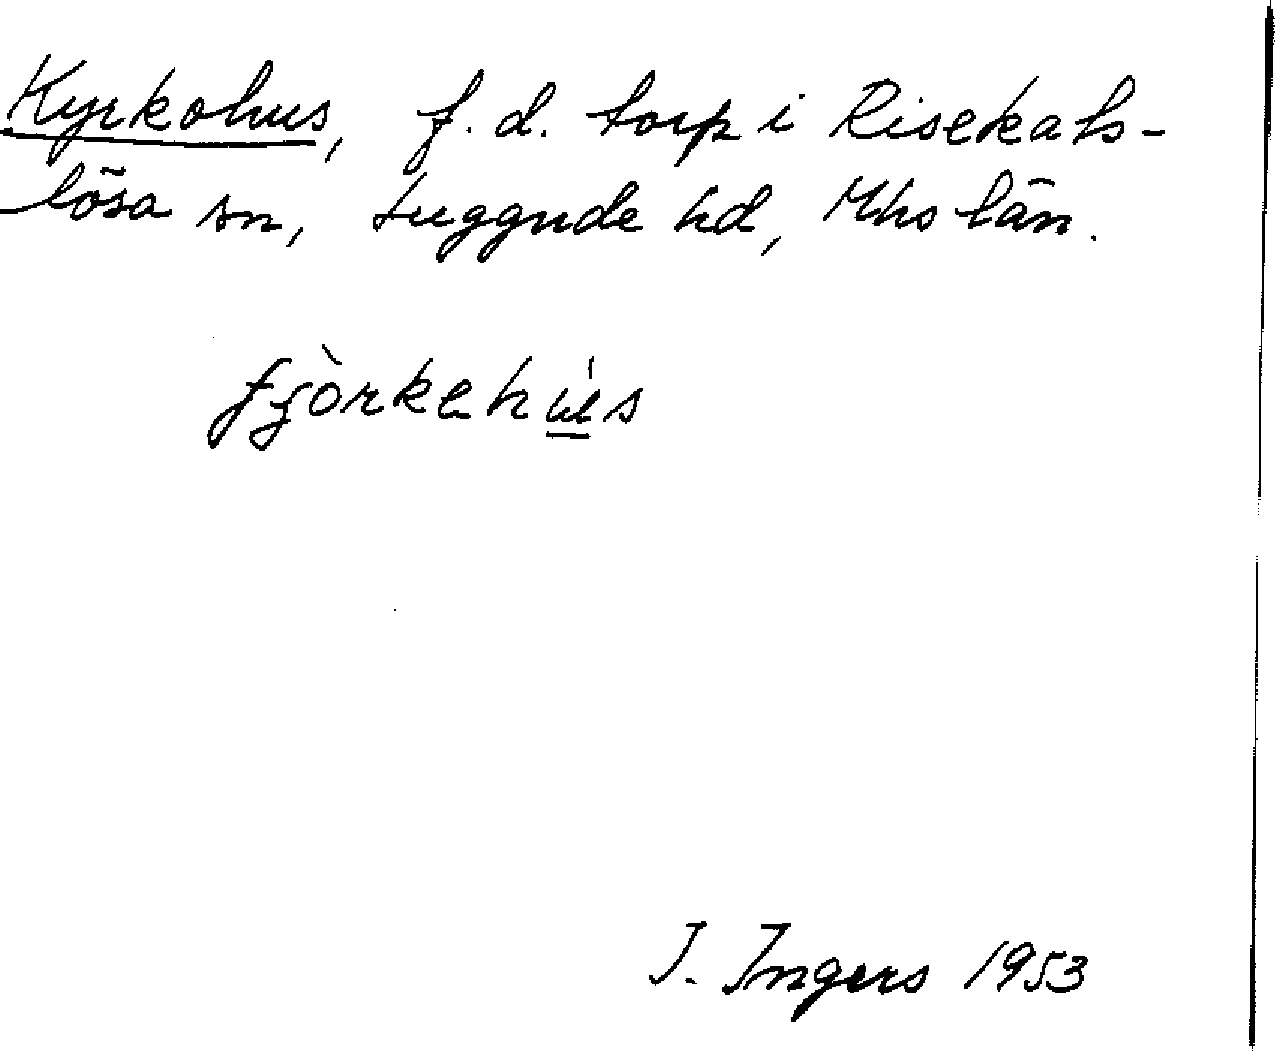 Kyrkohus, f.d. torp i Risekats-
lösa sn, Luggude hd, Mhs län.
fjòrkehús
I. Ingers 1953